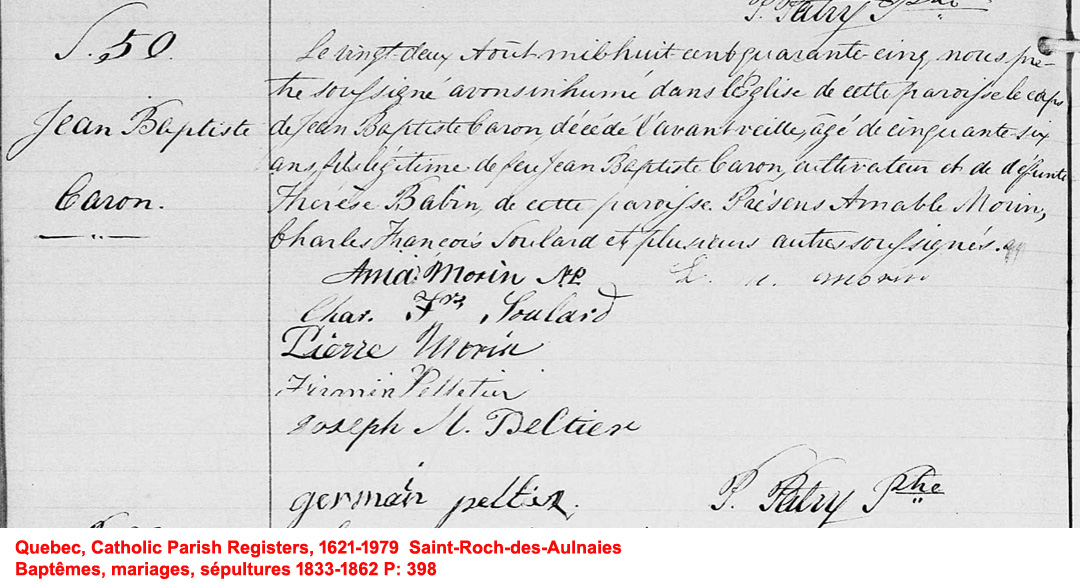 P. Patry Ptre
S. 50.
Jean Baptiste
Caron.
Le vingt-deux Août mil-huit cent quarante-cinq, nous prê-
tre soussigné avons inhumé dans l'Eglise de cette paroisse le corps
de Jean Baptiste Caron, décédé l'avant veille, âgé de cinquante-six
ans, fils légitime de feu Jean Baptiste Caron, cultivateur et de défunte
Thérèse Babin, de cette paroisse. Présens Amable Morin,
Charles François Soulard et plusieurs autres soussignés.
Am.d Morin NP. morin
Char. Frs Soulard
Pierre Morin
Firmin Pelletier
Joseph M. Peltier
germain peltier.
P. Patry Ptre
Quebec, Catholic Parish Registers, 1621-1979 Saint-Roch-des-Aulnaies
Baptêmes, mariages, sépultures 1833-1862 P: 398